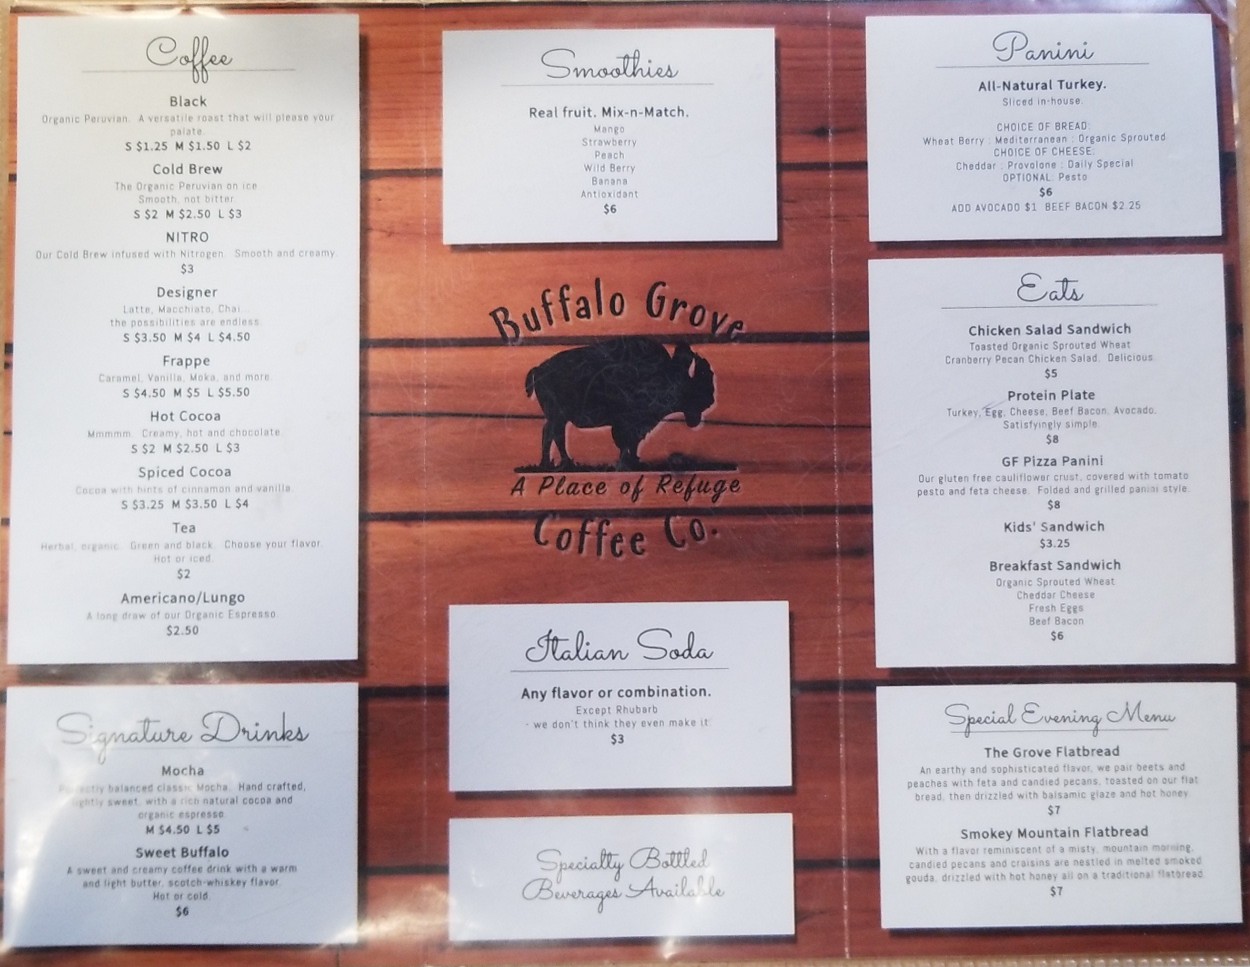 Coffee
Black
Organic Peruvian. A versatile roast that will please your
palate.
S $1.25 M $1.50 L $2
Cold Brew
The Organic Peruvian on ice
Smooth, not bitter
S $2 M $2.50 L $3
NITRO
Our Cold Brew infused with Nitrogen. Smooth and creamy
$3
Designer
Latte, Macchiato, Chai...
the possibilities are endless.
S $3.50 M $4 L $4.50
Frappe
Caramel, Vanilla, Moka, and more.
S $4.50 M $5 L $5.50
Hot Cocoa
Mmmmm. Creamy, hot and chocolate
S $2 M $2.50 L $3
Spiced Cocoa
Cocoa with hints of cinnamon and vanilla
S $3.25 M $3.50 L $4
Tea
Herbal, organic. Green and black. Choose your flavor.
Hot or iced.
$2
Americano/Lungo
A long draw of our Organic Espresso
$2.50
Signature Drinks
Mocha
Perfectly balanced classic Mocha. Hand crafted,
lightly sweet, with a rich natural cocoa and
organic espresso.
M $4.50 L $5
Sweet Buffalo
A sweet and creamy coffee drink with a warm
and light butter, scotch-whiskey flavor.
Hot or cold.
$6
Smoothies
Real fruit. Mix-n-Match.
Mango
Strawberry
Peach
Wild Berry
Banana
Antioxidant
$6
Buffalo Grove
A Place of Refuge
Coffee Co.
Italian Soda
Any flavor or combination.
Except Rhubarb
- we don't think they even make it!
$3
Specialty Bottled
Beverages Available
Panini
All-Natural Turkey.
Sliced in-house.
CHOICE OF BREAD:
Wheat Berry : Mediterranean : Organic Sprouted
CHOICE OF CHEESE:
Cheddar : Provolone : Daily Special
OPTIONAL: Pesto
$6
ADD AVOCADO $1 BEEF BACON $2.25
Eats
Chicken Salad Sandwich
Toasted Organic Sprouted Wheat
Cranberry Pecan Chicken Salad. Delicious.
$5
Protein Plate
Turkey, Egg, Cheese, Beef Bacon, Avocado.
Satisfyingly simple.
$8
GF Pizza Panini
Our gluten free cauliflower crust, covered with tomato
pesto and feta cheese. Folded and grilled panini style.
$8
Kids' Sandwich
$3.25
Breakfast Sandwich
Organic Sprouted Wheat
Cheddar Cheese
Fresh Eggs
Beef Bacon
$6
Special Evening Menu
The Grove Flatbread
An earthy and sophisticated flavor, we pair beets and
peaches with feta and candied pecans, toasted on our flat
bread, then drizzled with balsamic glaze and hot honey.
$7
Smokey Mountain Flatbread
With a flavor reminiscent of a misty, mountain morning,
candied pecans and craisins are nestled in melted smoked
gouda, drizzled with hot honey all on a traditional flatbread.
$7